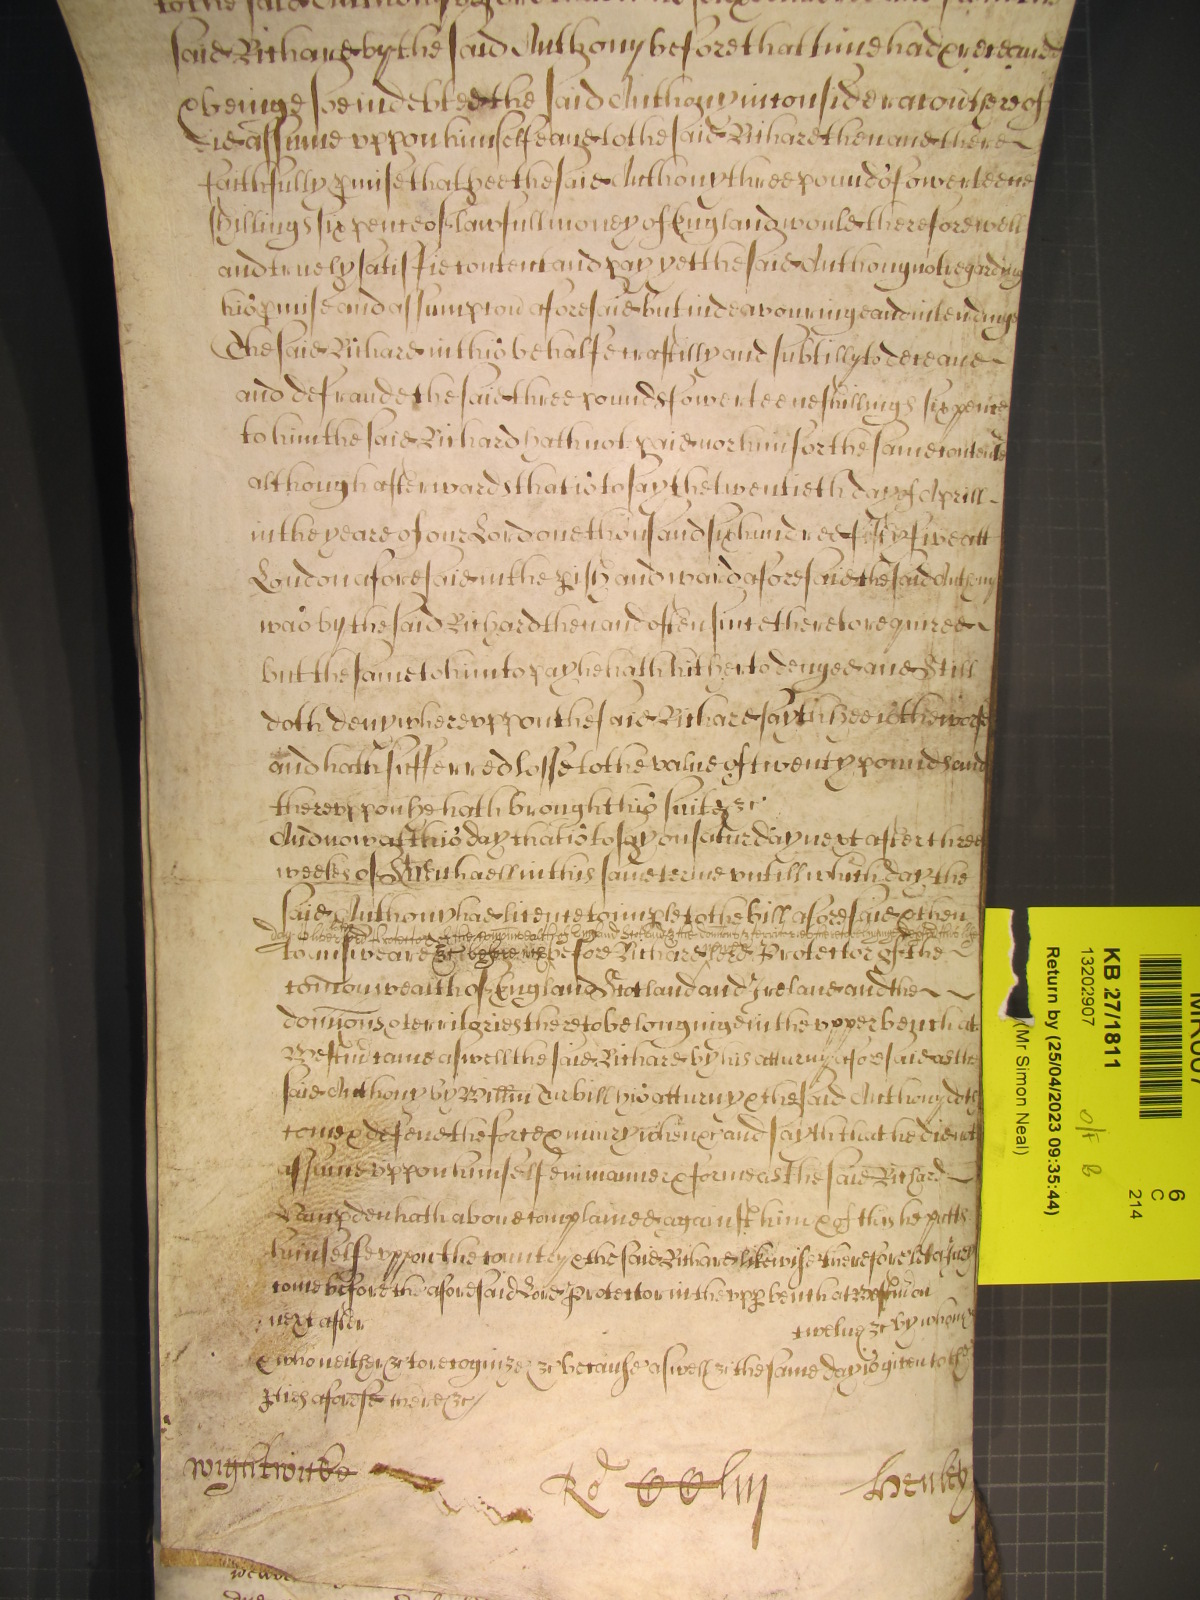 to the said Anthony before
said Richard by the said Anthony before that time had & received and
& beinge soe indebted the said Anthony in consideracon thereof
did assume uppon himselfe and to the said Richard then and there
faithfully pmise that hee the said Anthony three pounds fowerteene
shillings six pence of lawfull money of England would therefore well
and truely satisfie content and pay yet the said Anthony not regarding
his pmise and assumpcon aforesaid but indeavouringe and intendinge
the said Richard in this behalfe craftilly and subtilly to deceave
and defraude the said three pounds fowerteene shillings six pence
to him the said Richard hath not paid nor him for the same contented
although afterwards that is to say the twentieth day of Aprill
in the yeare of our Lord one thousand six hundred fifty five att
London aforesaid in the pish and ward aforesaid the said Anthony
was by the said Richard then and often since thereto required
but the same to him to pay he hath hitherto denyed and still
doth deny whereuppon the said Richard sayth hee is the worse
and hath sufferred losse to the value of twenty pounds and
thereuppon he hath brought this suite &c
And now att this day that is to say on saturday next after three
weekes of St Michaell in this same terme untill which day the
said Anthony had licence to imple to the bill aforesaid & then
to answeare &c before Richard Lord Protector of the
comonwealth of England Scotland and Ireland and the
domions & territories thereto belonginge in the upper bench at
Westm came aswell the said Richard by his atturny aforesaid as the
said Anthony by Willm Turbill his atturny & the said Anthony doth
come & defend the force & iniury when &c and sayth that he did not
assume uppon himselfe in manner & forme as the said Richard
hath above complained against him & of this he putts
himselfe uppon the country & the said Richard likewise therefore let a jury
come before the aforesaid Lord Protector in the upp bench at Westm on
next after twelve &c by whom
& who neither &c to recognize &c because aswell &c the same day is given to the
pties aforesd there &c
Wightwicke Rd Henley
KB 27/1811
13202907
Return by (25/04/2023 09:35:44)
(Mr Simon Neal)
6
C
214